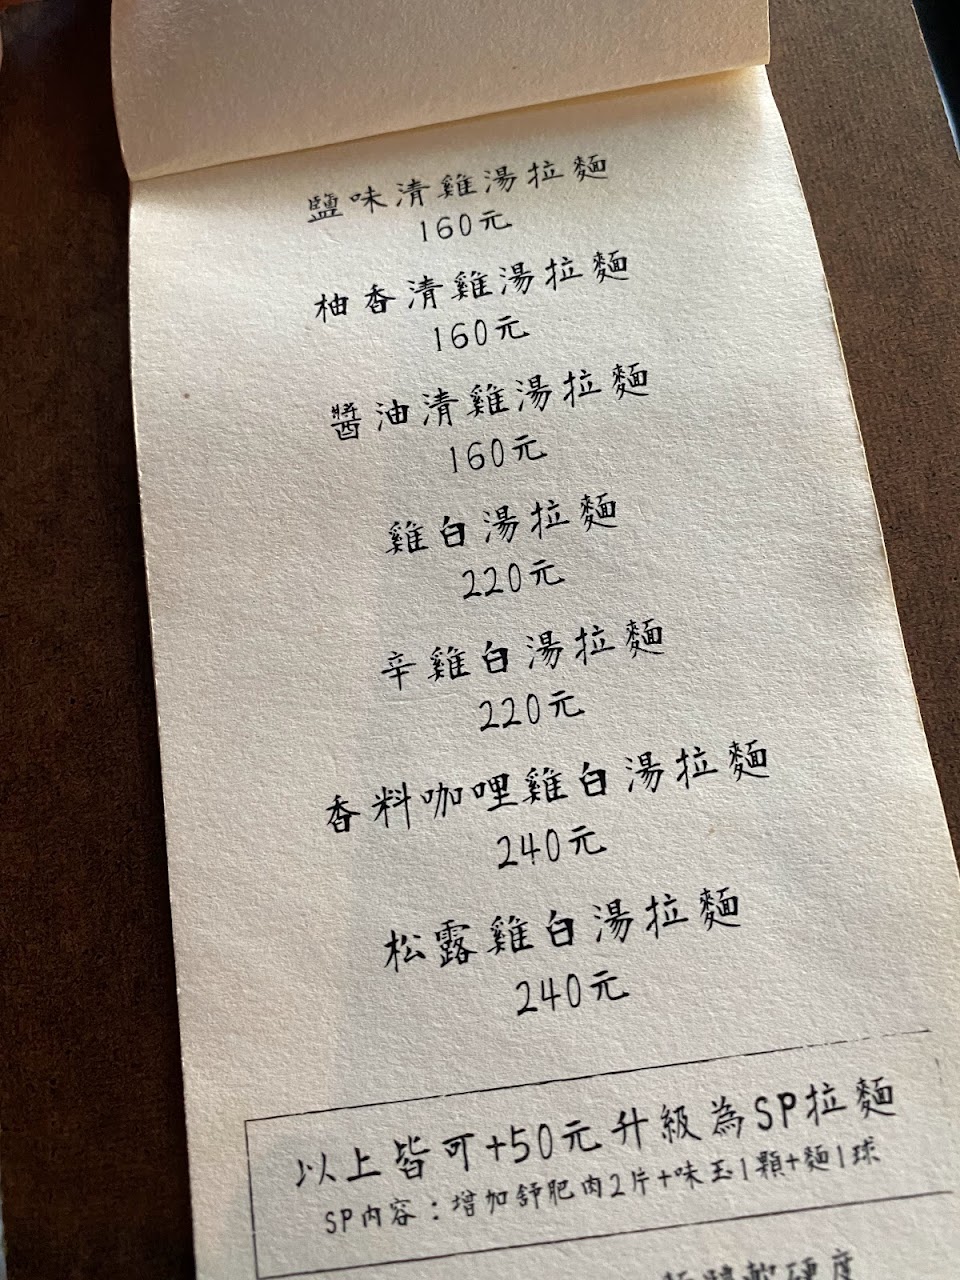 鹽味清雞湯拉麵
160元
柚香清雞湯拉麵
160元
醬油清雞湯拉麵
160元
雞白湯拉麵
220元
辛雞白湯拉麵
220元
香料咖哩雞白湯拉麵
240元
松露雞白湯拉麵
240元
以上皆可+50元升級為SP拉麵
SP內容：增加舒肥肉2片+味玉1顆+麵1球